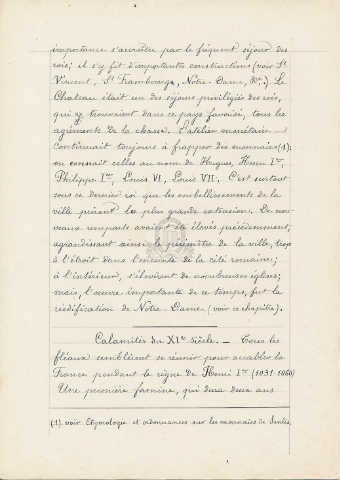 importance s'accroître par le fréquent séjour des
rois; il s'y fit d'importantes constructions (voir St
Vincent, St Frambourg, Notre-Dame, &c.) Le
Chateau était un des séjours privilégiés des rois,
qui y trouvaient dans ce pays favorisé, tous les
agréments de la chasse. L'atelier monétaire
continuait toujours à frapper des monnaies (1):
on connait celles au nom de Hugues, Henri Ier,
Philippe Ier, Louis VI, Louis VII. C'est surtout
sous ce dernier roi que les embellissements de la
ville prirent la plus grande extension. De nou-
veaux remparts avaient été élevés précédemment,
agrandissant ainsi le périmètre de la ville, trop
à l'étroit dans l'enceinte de la cité romaine;
à l'intérieur, s'élevèrent de nombreuses églises;
mais, l'œuvre importante de ce temps, fut la
réédification de Notre-Dame (voir ce chapitre).
Calamités du XIe siècle. — Tous les
fléaux semblèrent se réunir pour accabler la
France pendant le règne de Henri Ier (1031-1060)
Une première famine, qui dura deux ans
(1). voir Etymologie et ordonnances sur les monnaies de Senlis.